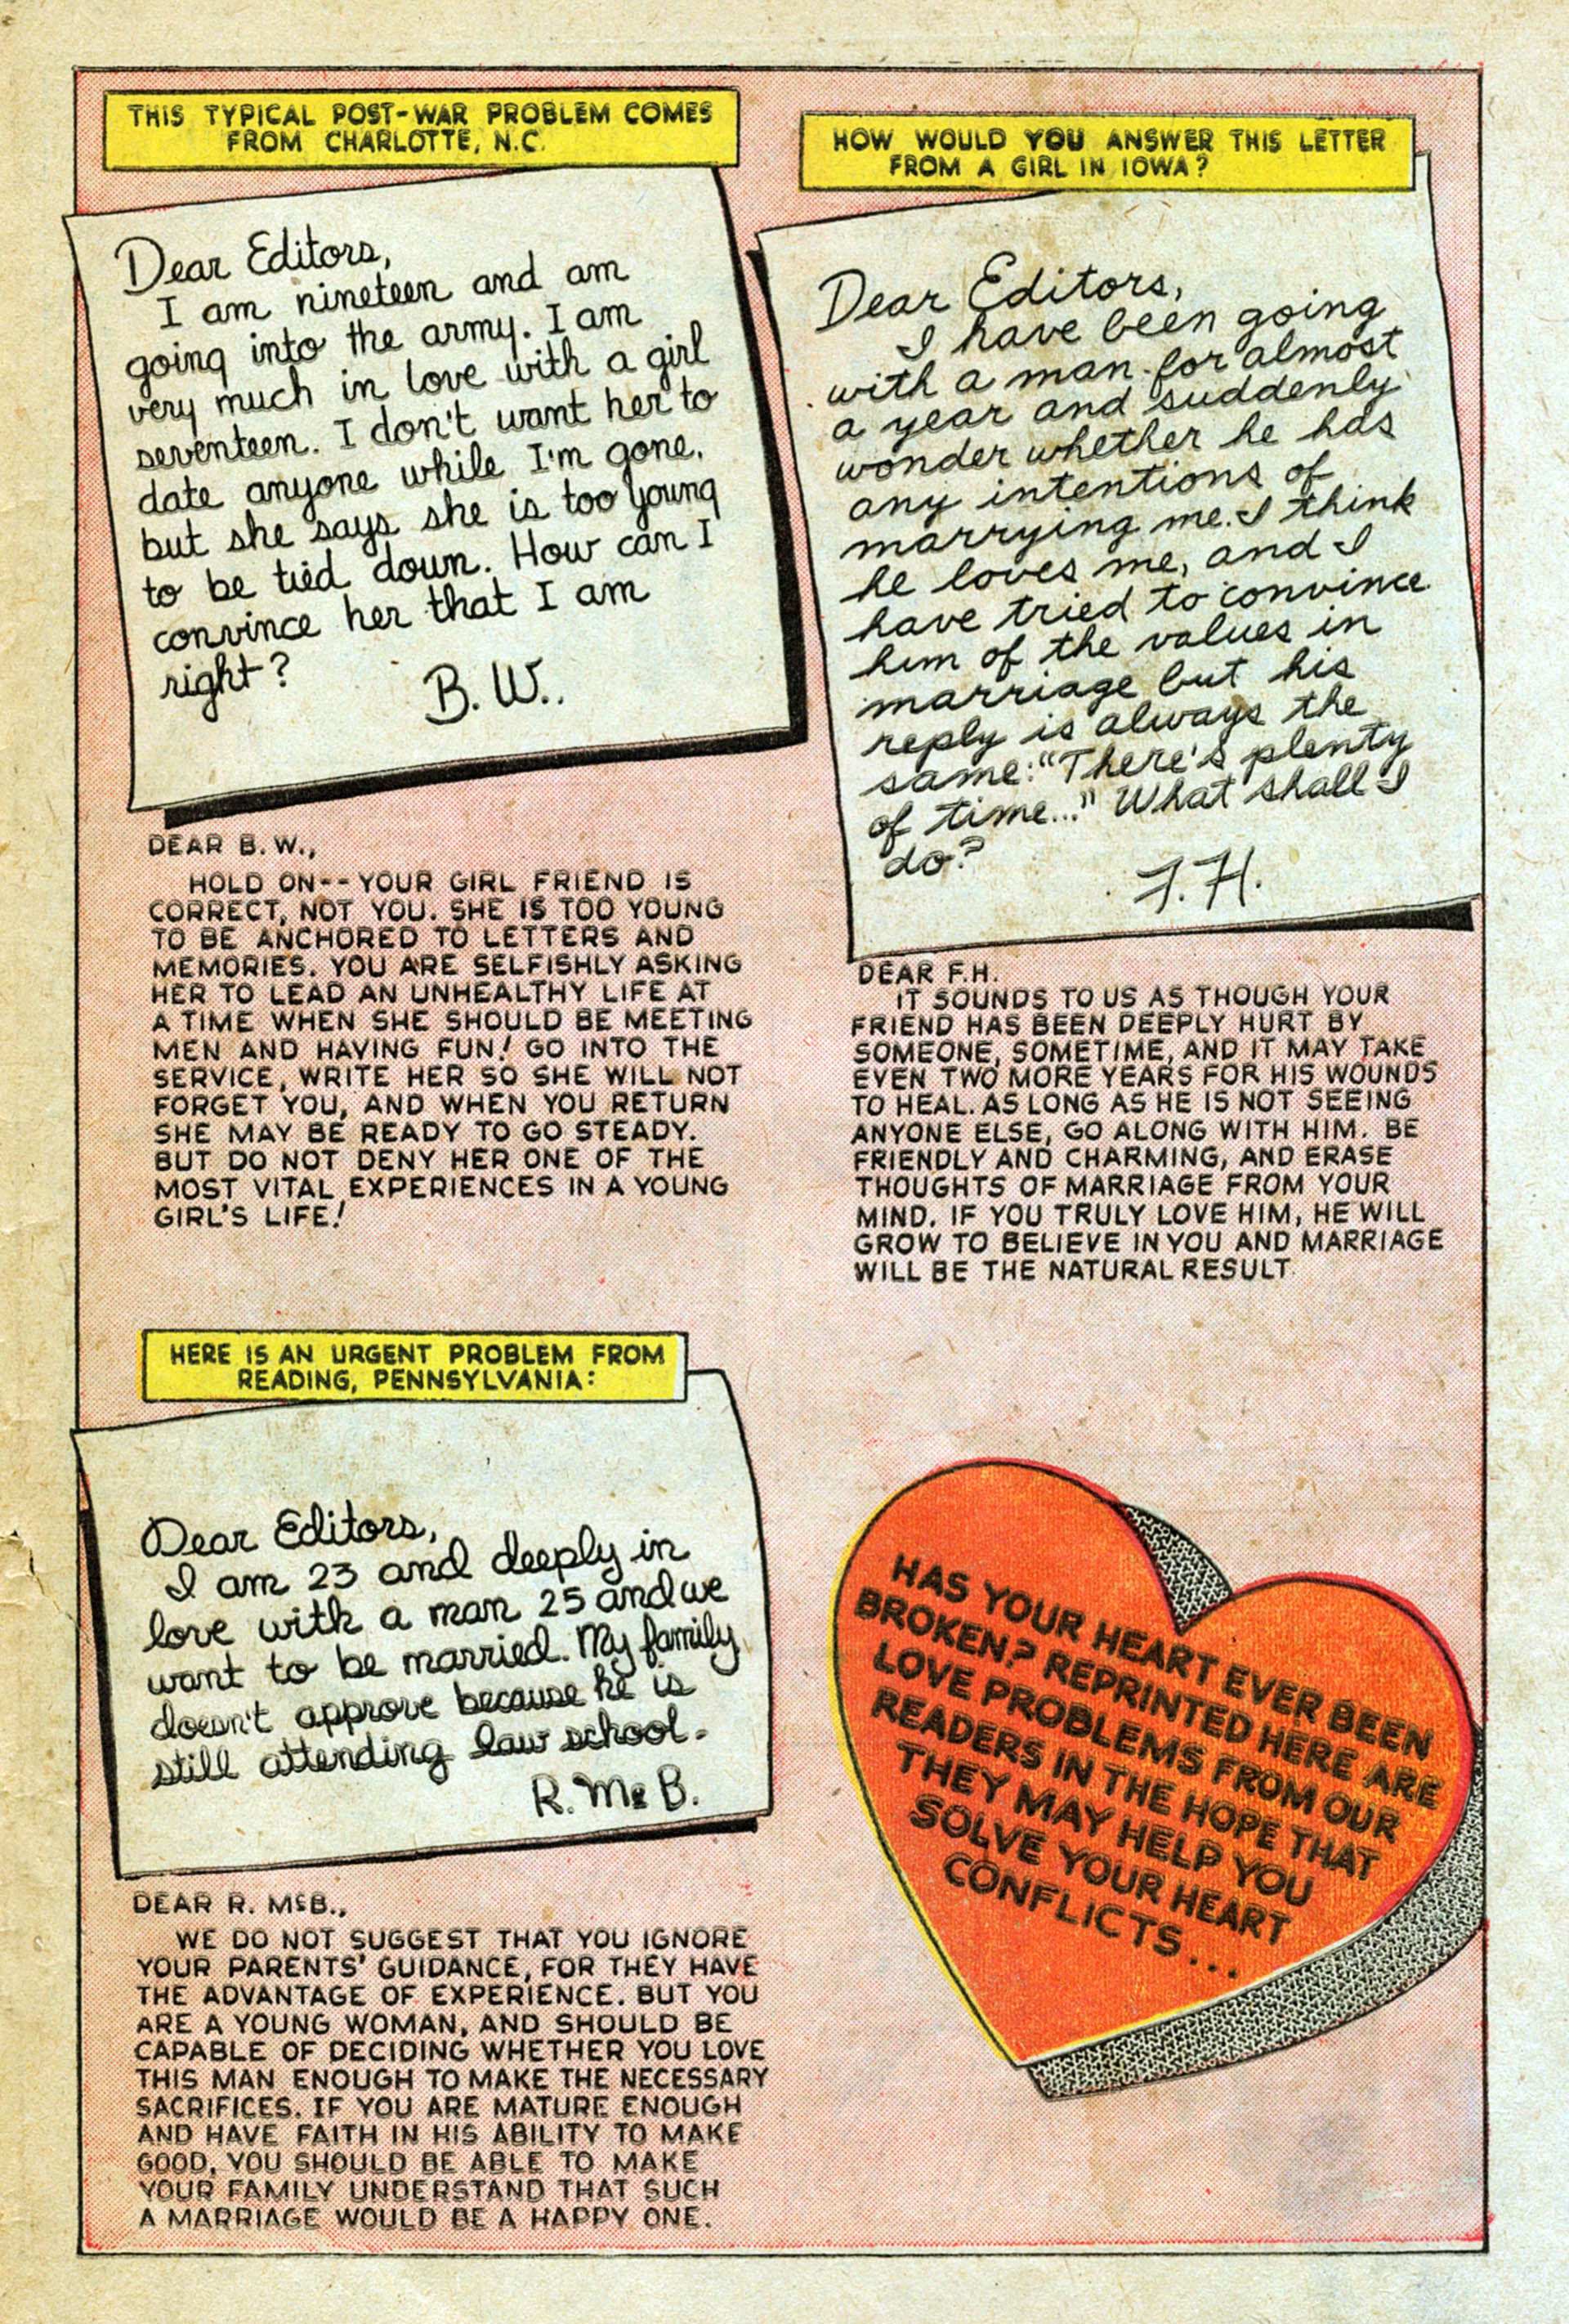 THIS TYPICAL POST-WAR PROBLEM COMES
FROM CHARLOTTE, N.C.
Dear Editors,
I am nineteen and am
going into the army. I am
very much in love with a girl
seventeen. I don't want her to
date anyone while I'm gone,
but she says she is too young
to be tied down. How can I
convince her that I am
right?
B.W..
DEAR B.W.,
HOLD ON--YOUR GIRL FRIEND IS
CORRECT, NOT YOU. SHE IS TOO YOUNG
TO BE ANCHORED TO LETTERS AND
MEMORIES. YOU ARE SELFISHLY ASKING
HER TO LEAD AN UNHEALTHY LIFE AT
A TIME WHEN SHE SHOULD BE MEETING
MEN AND HAVING FUN! GO INTO THE
SERVICE, WRITE HER SO SHE WILL NOT
FORGET YOU, AND WHEN YOU RETURN
SHE MAY BE READY TO GO STEADY.
BUT DO NOT DENY HER ONE OF THE
MOST VITAL EXPERIENCES IN A YOUNG
GIRL'S LIFE!
HERE IS AN URGENT PROBLEM FROM
READING, PENNSYLVANIA:
Dear Editors,
I am 23 and deeply in
love with a man 25 and we
want to be married. My family
doesn't approve because he is
still attending law school.
R. Mc B.
DEAR R. McB.,
WE DO NOT SUGGEST THAT YOU IGNORE
YOUR PARENTS' GUIDANCE, FOR THEY HAVE
THE ADVANTAGE OF EXPERIENCE. BUT YOU
ARE A YOUNG WOMAN, AND SHOULD BE
CAPABLE OF DECIDING WHETHER YOU LOVE
THIS MAN ENOUGH TO MAKE THE NECESSARY
SACRIFICES. IF YOU ARE MATURE ENOUGH
AND HAVE FAITH IN HIS ABILITY TO MAKE
GOOD, YOU SHOULD BE ABLE TO MAKE
YOUR FAMILY UNDERSTAND THAT SUCH
A MARRIAGE WOULD BE A HAPPY ONE.
HOW WOULD YOU ANSWER THIS LETTER
FROM A GIRL IN IOWA?
Dear Editors,
I have been going
with a man for almost
a year and suddenly
wonder whether he has
any intentions of
marrying me. I think
he loves me, and I
have tried to convince
him of the values in
marriage but his
reply is always the
same: "There's plenty
of time..." What shall I
do?
F.H.
DEAR F.H.
IT SOUNDS TO US AS THOUGH YOUR
FRIEND HAS BEEN DEEPLY HURT BY
SOMEONE, SOMETIME, AND IT MAY TAKE
EVEN TWO MORE YEARS FOR HIS WOUNDS
TO HEAL. AS LONG AS HE IS NOT SEEING
ANYONE ELSE, GO ALONG WITH HIM. BE
FRIENDLY AND CHARMING, AND ERASE
THOUGHTS OF MARRIAGE FROM YOUR
MIND. IF YOU TRULY LOVE HIM, HE WILL
GROW TO BELIEVE IN YOU AND MARRIAGE
WILL BE THE NATURAL RESULT.
HAS YOUR HEART EVER BEEN
BROKEN? REPRINTED HERE ARE
LOVE PROBLEMS FROM OUR
READERS IN THE HOPE THAT
THEY MAY HELP YOU
SOLVE YOUR HEART
CONFLICTS...